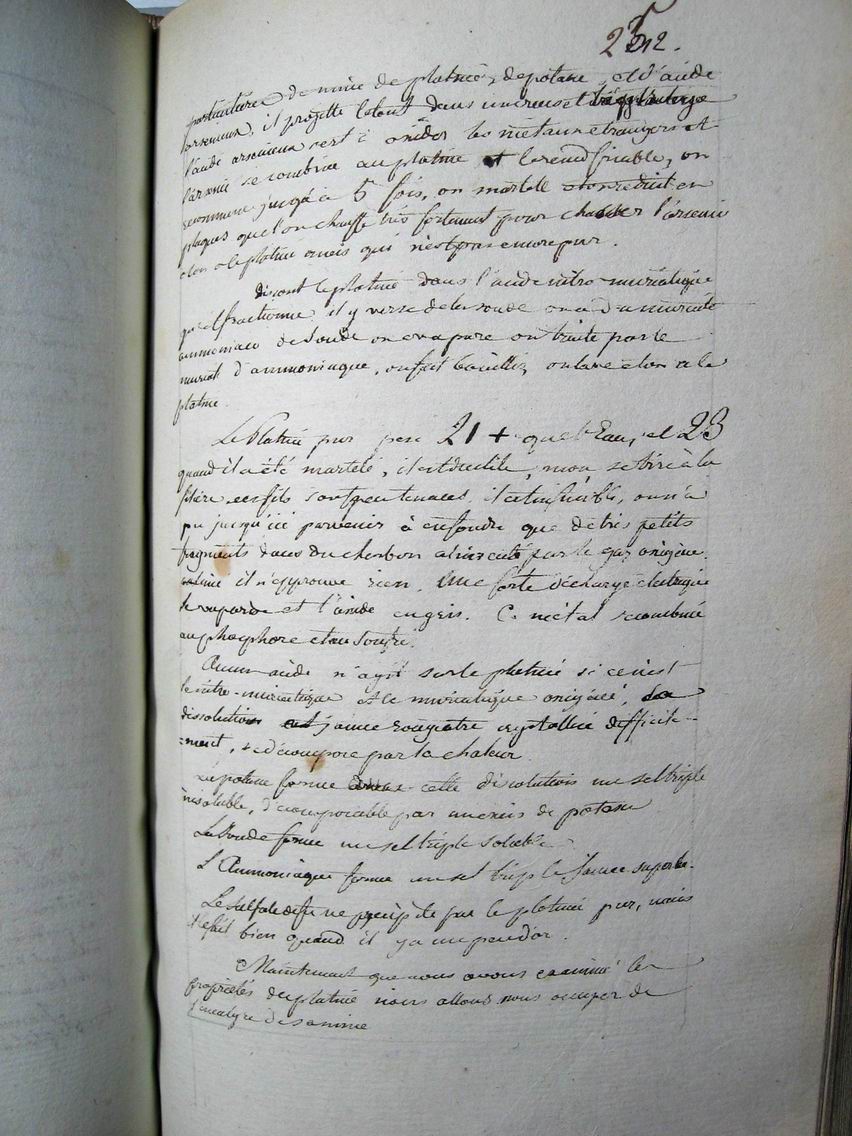 232.
de mine de platine, de potasse, et d'acide
arsenieux, il projette le tout dans un creuset
l'acide arsenieux sert à oxider les métaux etrangers et
l'arsenic se combine au platine et le rend friable, on
recommence jusqu'à 5 fois, on martele et on reduit en
plaques que l'on chauffe très fortement pour chasser l'arsenic
et on a le platine mais qui n'est pas encore pur.
dissout le platine dans l'acide nitro-muriatique
il y verse de la soude on a du muriate
ammoniaco de soude on evapore on traite par le
muriate d'ammoniaque, on fait bouillir, on lave et on a le
platine.
Le Platine pur pese 21 + que l'Eau, et 23
quand il a été martelé, il est ductile, mou, se tire à la
filière, ses fils sont peu tenaces, il est infusible, on n'a
pu jusqu'ici parvenir à en fondre que de très petits
fragments dans du charbon alimenté par le gaz oxigène.
il n'eprouve rien. Une forte décharge electrique
le vaporise et l'oxide en gris. Ce métal se combine
au phosphore et au soufre.
Aucun acide n'agit sur le platine si ce n'est
le nitro-muriatique et le muriatique oxigéné, la
dissolution est jaune rougeatre crystallise difficile-
ment, & se décompose par la chaleur.
La potasse forme dans cette dissolution un sel triple
insoluble, décomposable par un excès de potasse
La Soude forme un sel triple soluble.
L'Ammoniaque forme un sel triple jaune superbe.
Le sulfate de fer ne précipite pas le platine pur, mais
le fait bien quand il y a un peu d'or.
Maintenant que nous avons examiné les
propriétés du platine nous allons nous occuper de
l'analyse de sa mine